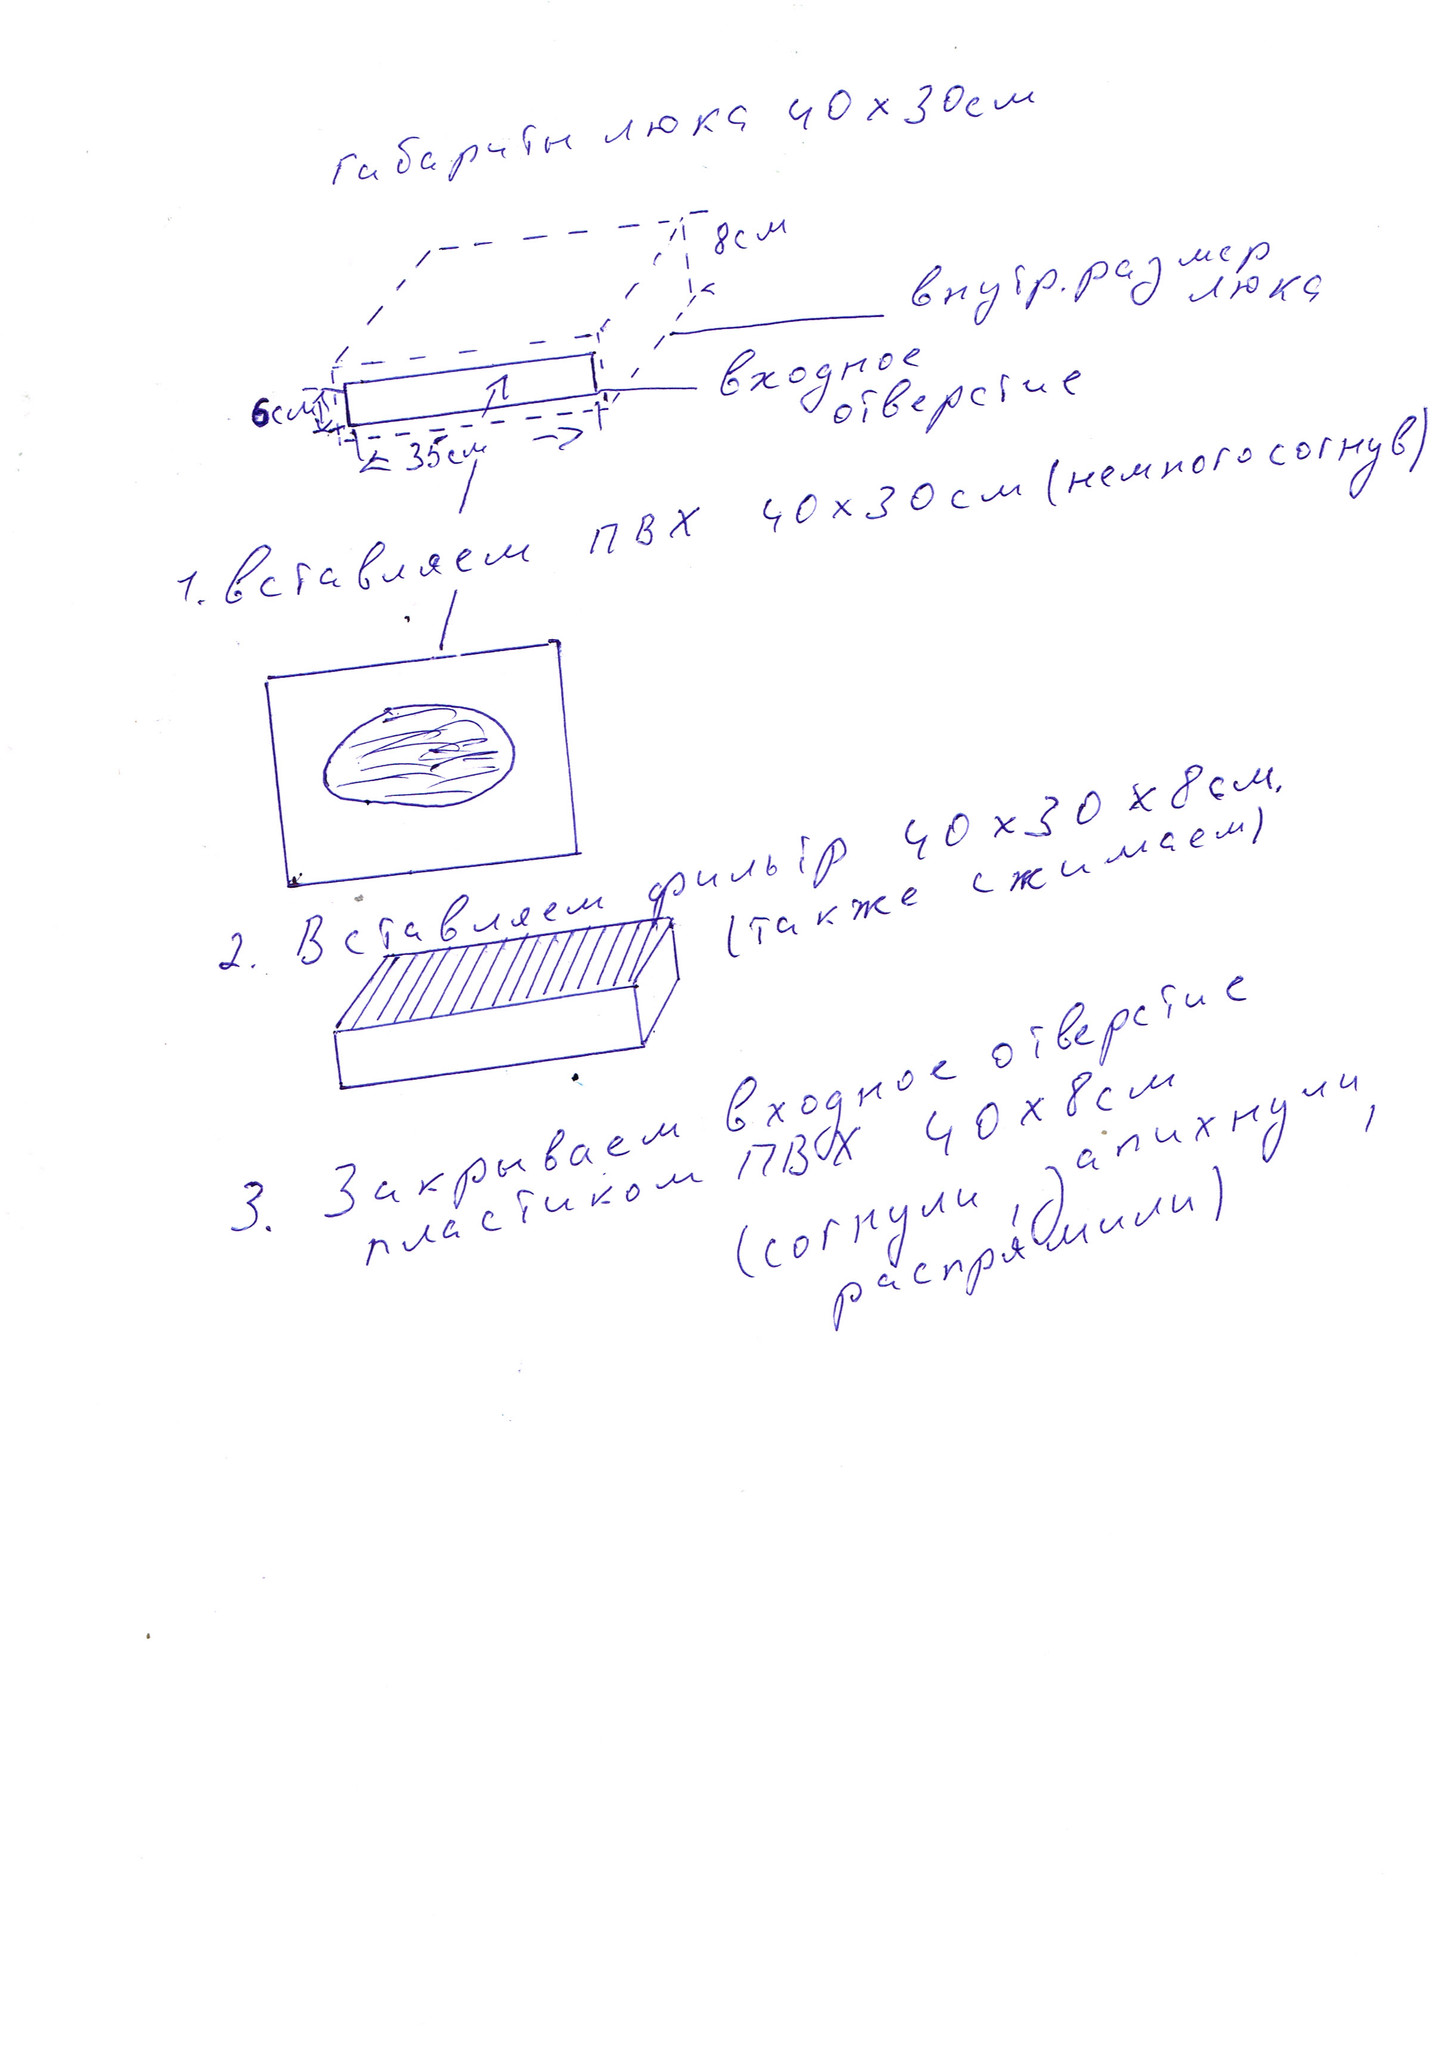 габариты люка 40x30см
8см
внутр. размер
люка
входное
отверстие
6см
35см
1. Вставляем ПВХ 40x30см (немного согнув)
2. Вставляем фильтр 40x30x8см.
(также сжимаем)
3. Закрываем входное отверстие
пластиком ПВХ 40x8см
(согнули, запихнули,
распрямили)